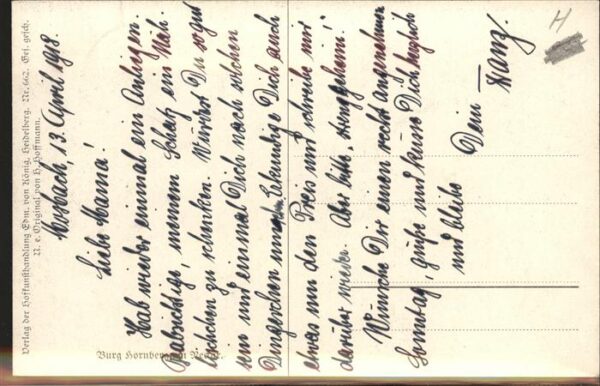 Mosbach, 13. April 1918.
Liebe Mama!
Hab wieder einmal ein Anliegen.
Beabsichtige, meinem Schatz ein Näh-
kästchen zu schenken. Würdest Du so gut
sein und einmal Dich nach solchen
Dingerchen umsehen. Erkundige Dich auch
etwas um den Preis und schreibe mir
darüber wieder. Aber bitte, streng geheim!
Wünsche Dir einen recht angenehmen
Sonntag, grüße und küsse Dich herzlich
und bleibe Dein
Franz.
H
Verlag der Hofkunsthandlung Edm. von König, Heidelberg. Nr. 662. Ges. gesch.
N. e. Original von H. Hoffmann.
Burg Hornberg am Neckar.